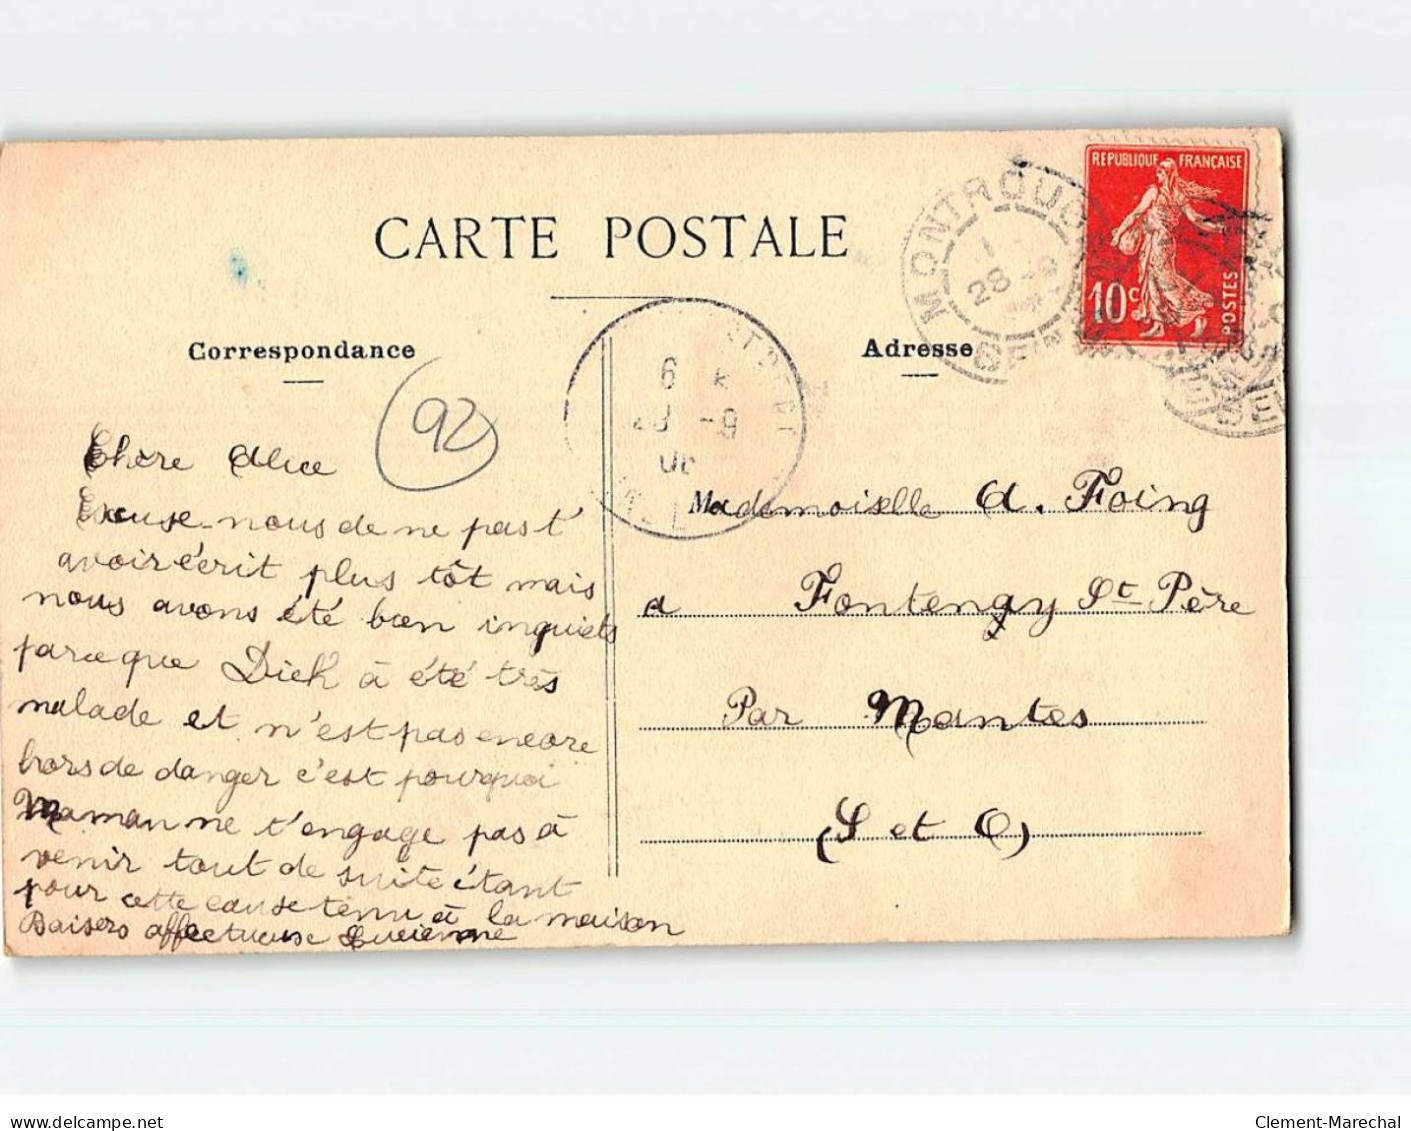 CARTE POSTALE
Correspondance
Adresse
REPUBLIQUE FRANÇAISE
10c
POSTES
MONTROUGE
1
28 -9
SEINE
6
-9
92
Chère Alice
Excuse-nous de ne pas t'
avoir écrit plus tôt mais
nous avons été bien inquiets
parceque Dick à été très
malade et n'est pas encore
hors de danger c'est pourquoi
Maman ne t'engage pas à
venir tout de suite étant
pour cette cause tenu à la maison
Baisers affectueuse Lucienne
Mademoiselle A. Foing
a Fontengy St Père
Par Mantes
(S et O)
delcampe.net
Clement-Marechal